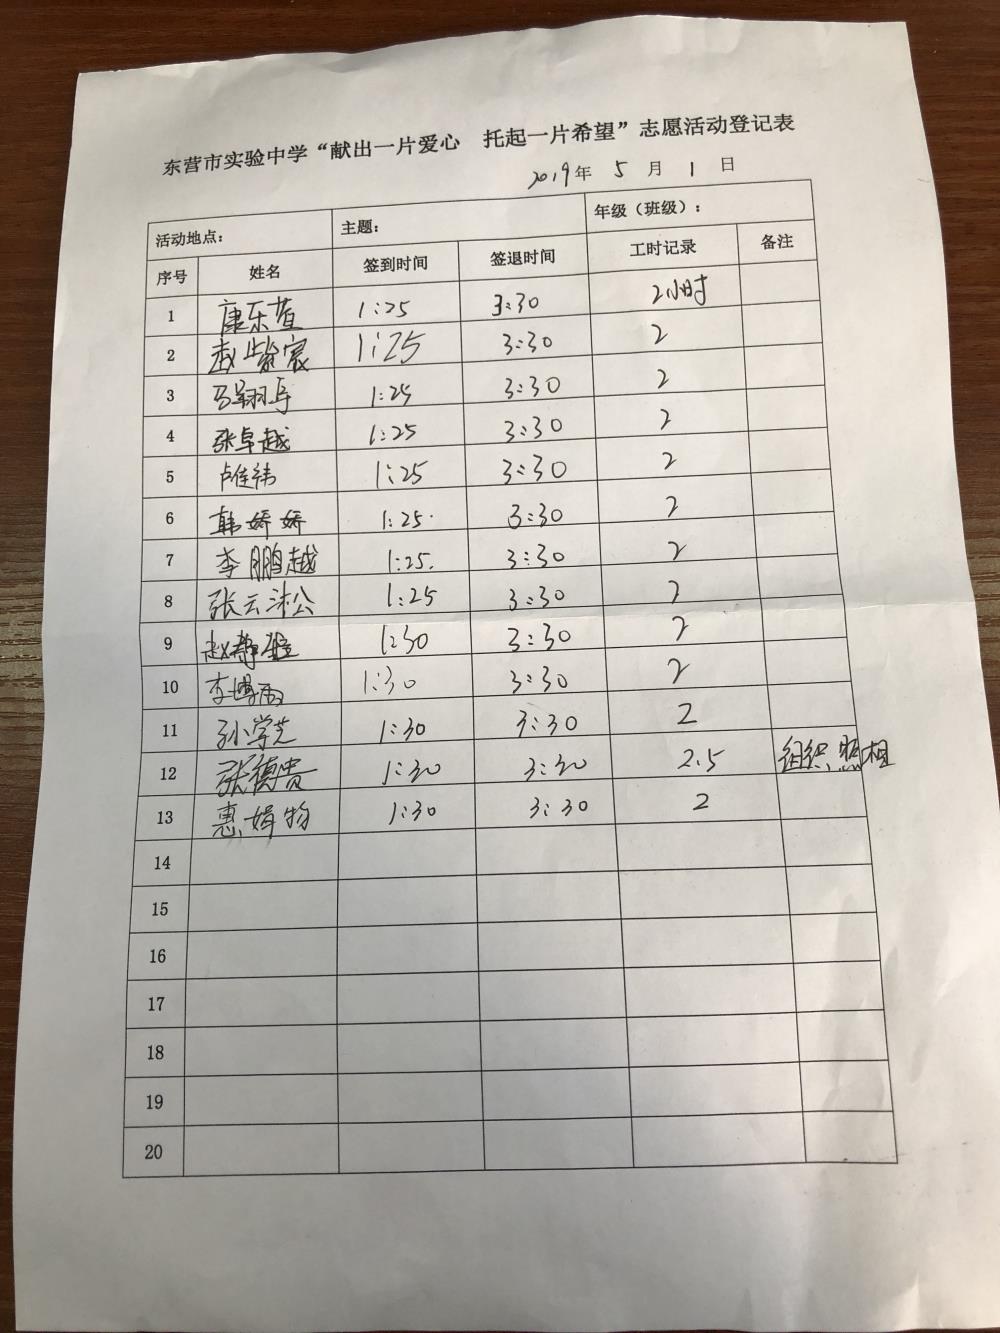 东营市实验中学“献出一片爱心 托起一片希望”志愿活动登记表
2019年 5 月 1 日
活动地点: 主题: 年级（班级）:
序号 姓名 签到时间 签退时间 工时记录 备注
1 康乐萱 1:25 3:30 2小时
2 赵紫宸 1:25 3:30 2
3 1:25 3:30 2
4 张卓越 1:25 3:30 2
5 卢佳祎 1:25 3:30 2
6 韩娇娇 1:25 3:30 2
7 李鹏越 1:25 3:30 2
8 张云淞 1:25 3:30 2
9 赵静 1:30 3:30 2
10 李博雨 1:30 3:30 2
11 孙学芝 1:30 3:30 2
12 张德贵 1:30 3:30 2.5 组织、照相
13 惠娟 1:30 3:30 2
14
15
16
17
18
19
20